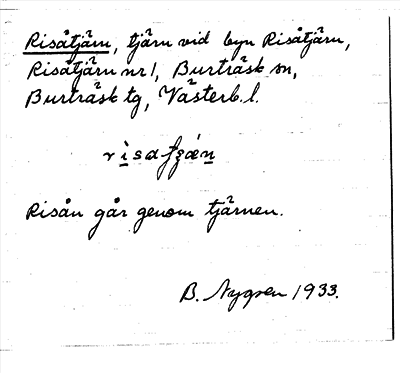 Risåtjärn, tjärn vid byn Risåtjärn,
Risåtjärn nr 1, Burträsk sn,
Burträsk tg, Västerb. l.
Risån går genom tjärnen.
B. Nygren 1933.